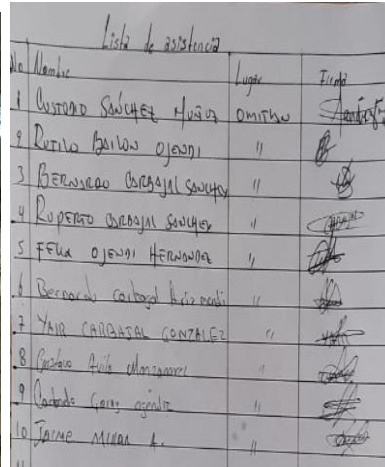 Lista de asistencia
No Nombre Lugar Firma
1 CUSTODIO SÁNCHEZ MUÑOZ OMITLAN
2 RUTILO BAILON OJENDI "
3 BERNARDO CARBAJAL SANCHEZ "
4 RUPERTO CARBAJAL SANCHEZ "
5 FELIX OJENDI HERNANDEZ "
6 Bernardo carbajal "
7 YAIR CARBAJAL GONZALEZ "
8 Gustavo Avila Manzanares "
9 "
10 JAIME A. "